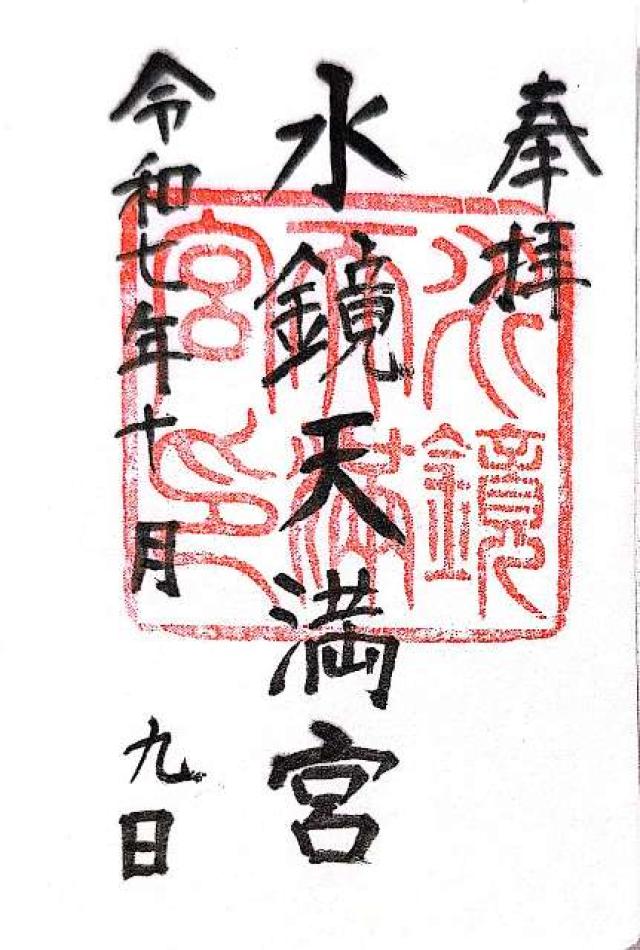 奉拝
水鏡天満宮
令和七年十月九日
水鏡天満宮印